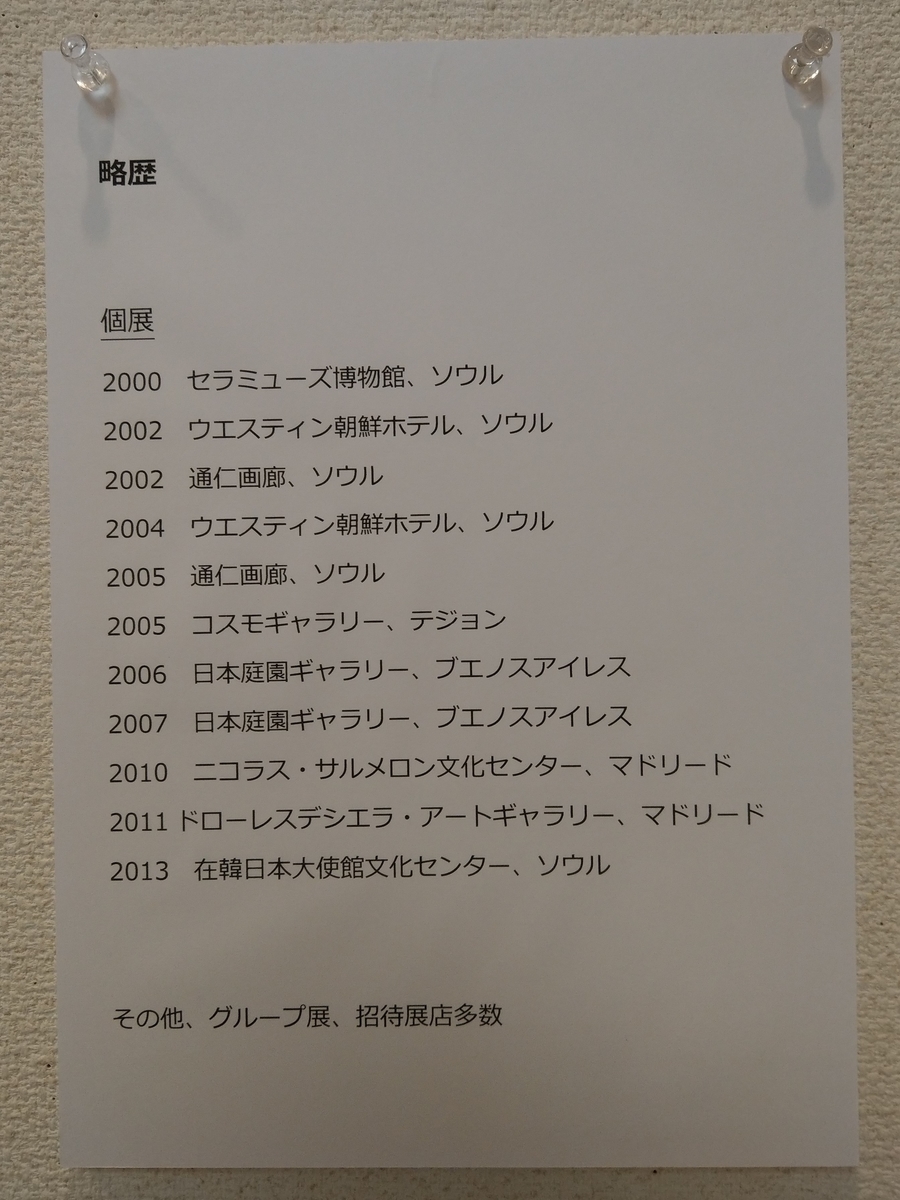 略歴
個展
2000 セラミューズ博物館、ソウル
2002 ウエスティン朝鮮ホテル、ソウル
2002 通仁画廊、ソウル
2004 ウエスティン朝鮮ホテル、ソウル
2005 通仁画廊、ソウル
2005 コスモギャラリー、テジョン
2006 日本庭園ギャラリー、ブエノスアイレス
2007 日本庭園ギャラリー、ブエノスアイレス
2010 ニコラス・サルメロン文化センター、マドリード
2011 ドローレスデシエラ・アートギャラリー、マドリード
2013 在韓日本大使館文化センター、ソウル
その他、グループ展、招待展店多数